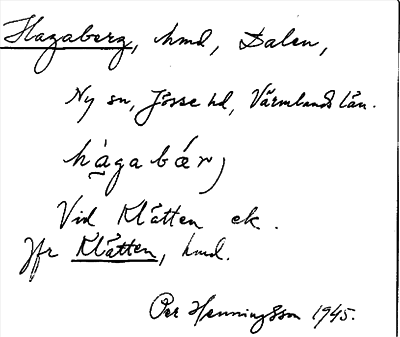 Hagaberg, hmd, Dalen,
Ny sn, Jösse hd, Värmlands län.
hàgabǽr)
Vid Klätten ek.
Jfr Klätten, hmd.
Per Henningsson 1945.